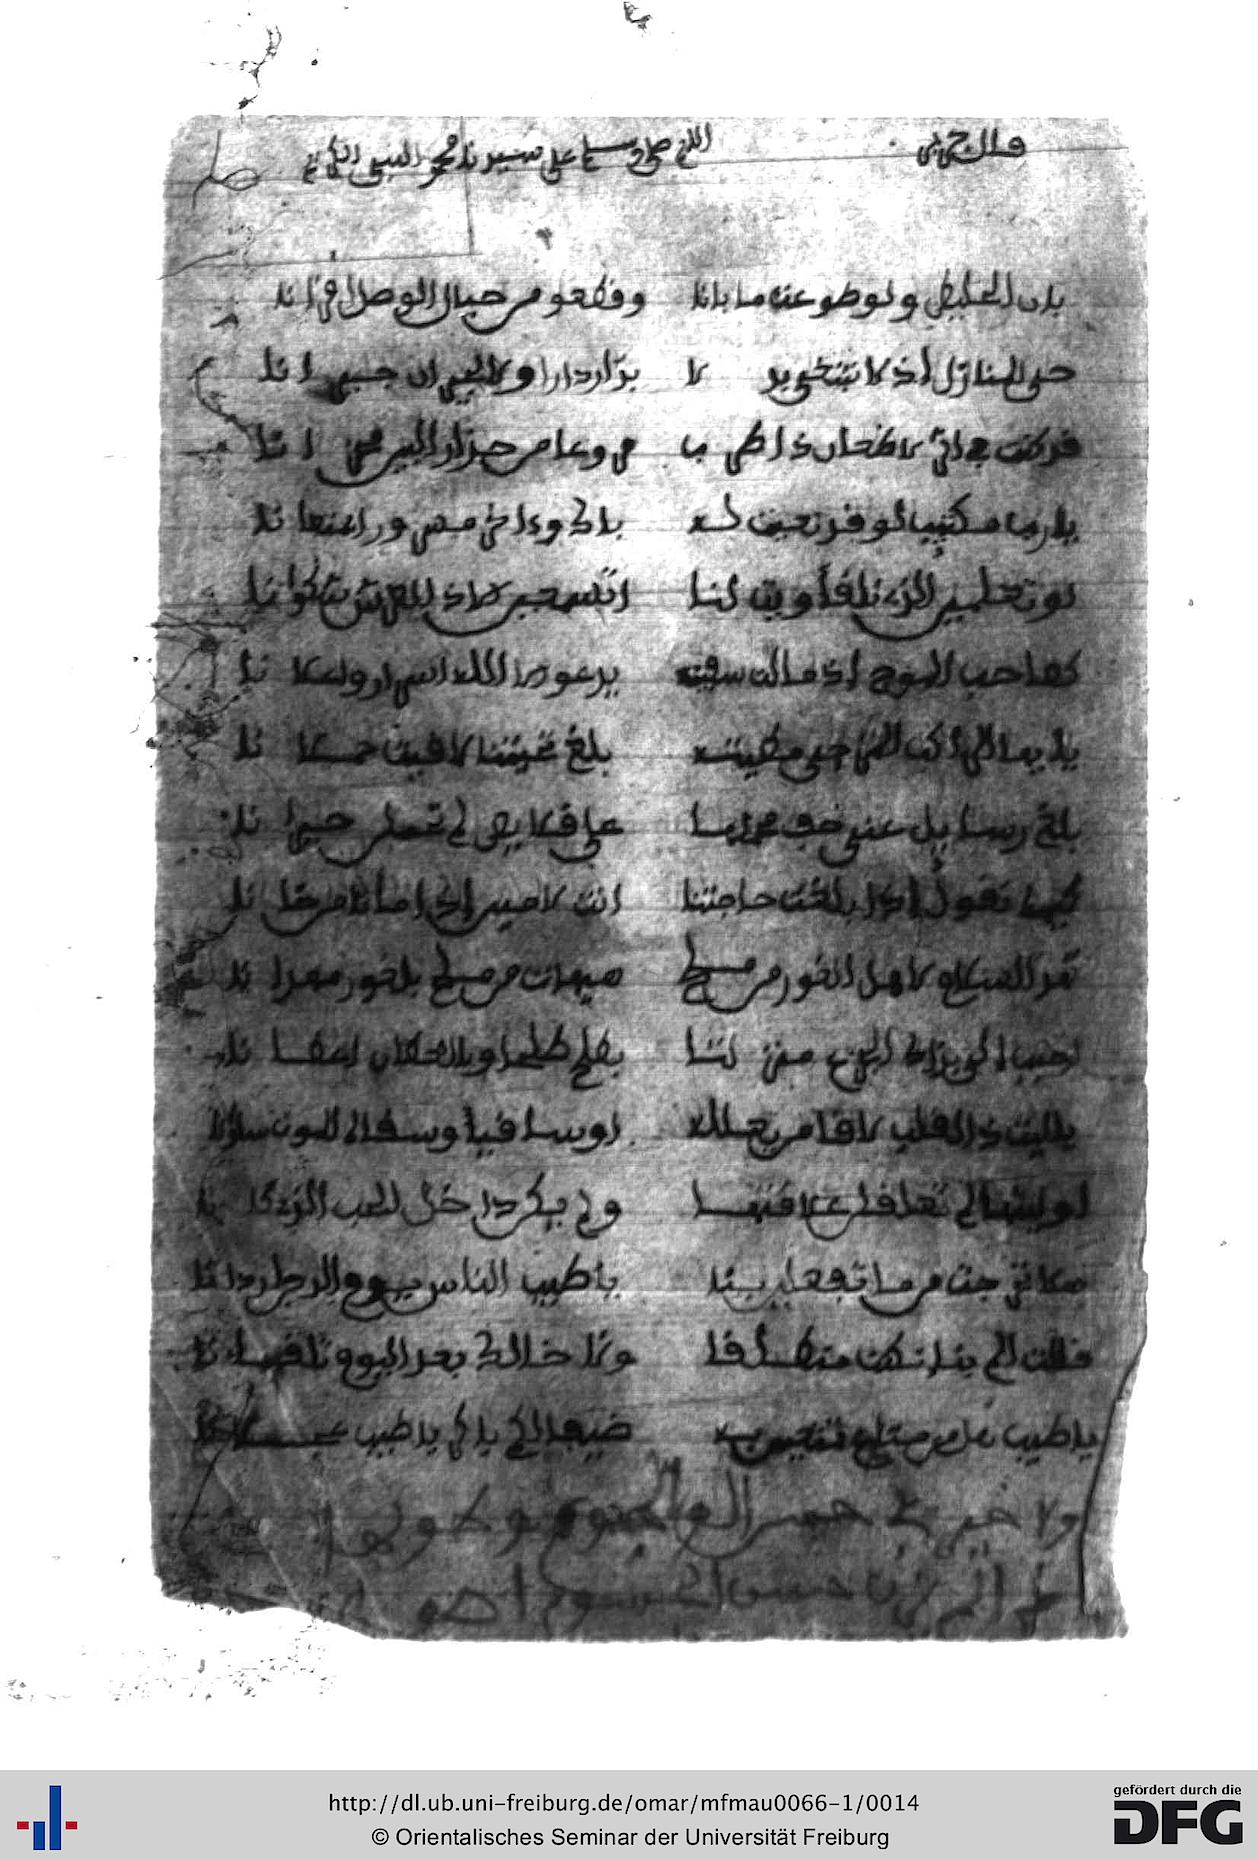 قال جرير اللهم صل وسلم على سيدنا محمد النبي الكريم
بان الخليط ولو طوعت ما بانا وقطعوا من حبال الوصل اقرانا
حي المنازل اذ لا نبتغي بدلا بالدار دارا ولا الجيران جيرانا
قد كنت في اثر الاظعان ذا طرب مروعا من حذار البين محزانا
يا رب مكتئب لو قد نعيت له باك وءاخر مسرور
لو تعلمين الذي نلقى أويت لنا او تسمعين الى ذي العرش شكوانا
كصاحب الموج اذ مالت سفينته يدعو الى الله اسرارا واعلانا
يا ايها الراكب المزجي مطيته بلغ تحيتنا لاقيت حملانا
بلغ رسائل عني خف محملها على قلائص لم يحملن حيرانا
كيما نقول اذا بلغت حاجتنا انت الامين
نهدي السلام لاهل الغور من ملح هيهات من ملح بالغور مهدانا
احبب الي بذاك الجزع منزلة بالطلح طلحا وبالاعطان اعطانا
يا ليت ذا القلب لاقا من يعلله او ساقيا وسقاه اليوم سلوانا
او ليتها لم تعلقنا علاقتها ولم يكن داخل الحب الذي كانا
هلا تحرجت مما تفعلين بنا يا اطيب الناس يوم الدجن اردانا
قالت الم بنا ان كنت منطلقا ولا اخالك بعد اليوم تلقانا
يا طيب هل من متاع تمتعين به ضيفا لكم باكرا يا طيب عجلانا
http://dl.ub.uni-freiburg.de/omar/mfmau0066-1/0014
© Orientalisches Seminar der Universität Freiburg
gefördert durch die
DFG